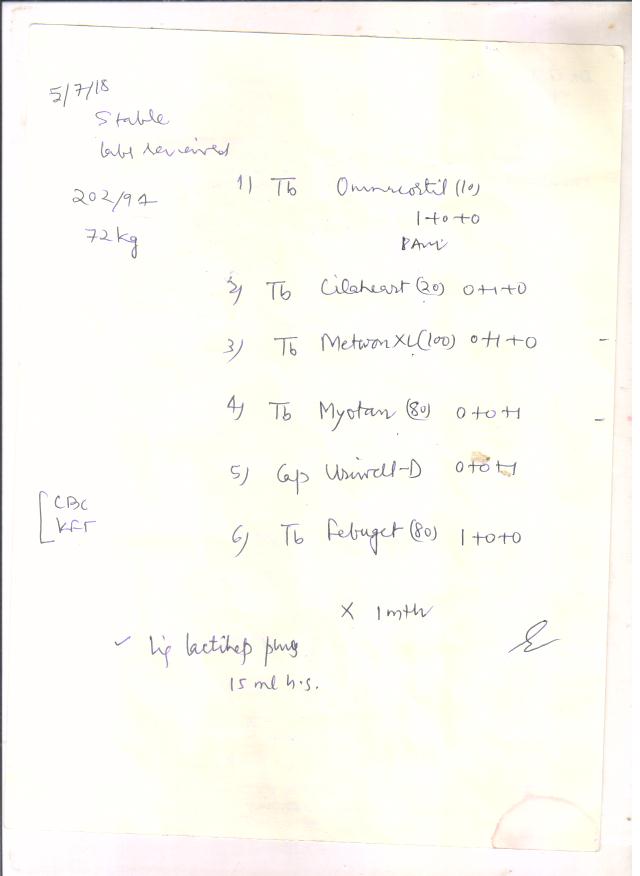 5/7/18
Stable
labs reviewed
202/94
72 kg
1) Tb Omnacortil (10)
1+0+0
2) Tb Cilaheart (20) 0+1+0
3) Tb Metwon XL (100) 0+1+0
4) Tb Myotan (80) 0+0+1
5) Cap Usiwell-D 0+0+1
6) Tb Febuget (80) 1+0+0
[CBC
KFT
X 1 mth
✓ Liq lactihep plus
15 ml h.s.